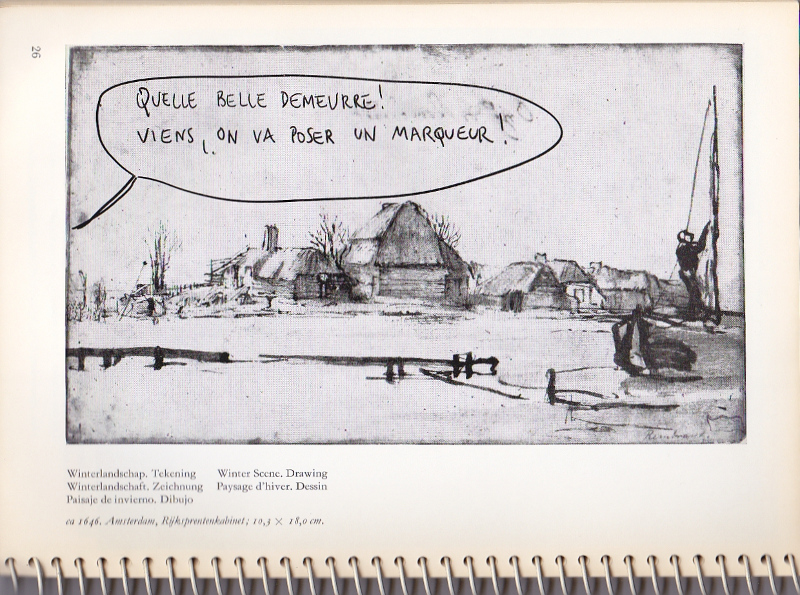 26
QUELLE BELLE DEMEURRE!
VIENS, ON VA POSER UN MARQUEUR!
Winterlandschap. Tekening Winter Scene. Drawing
Winterlandschaft. Zeichnung Paysage d'hiver. Dessin
Paisaje de invierno. Dibujo
ca 1646. Amsterdam, Rijksprentenkabinet; 10,3 × 18,0 cm.